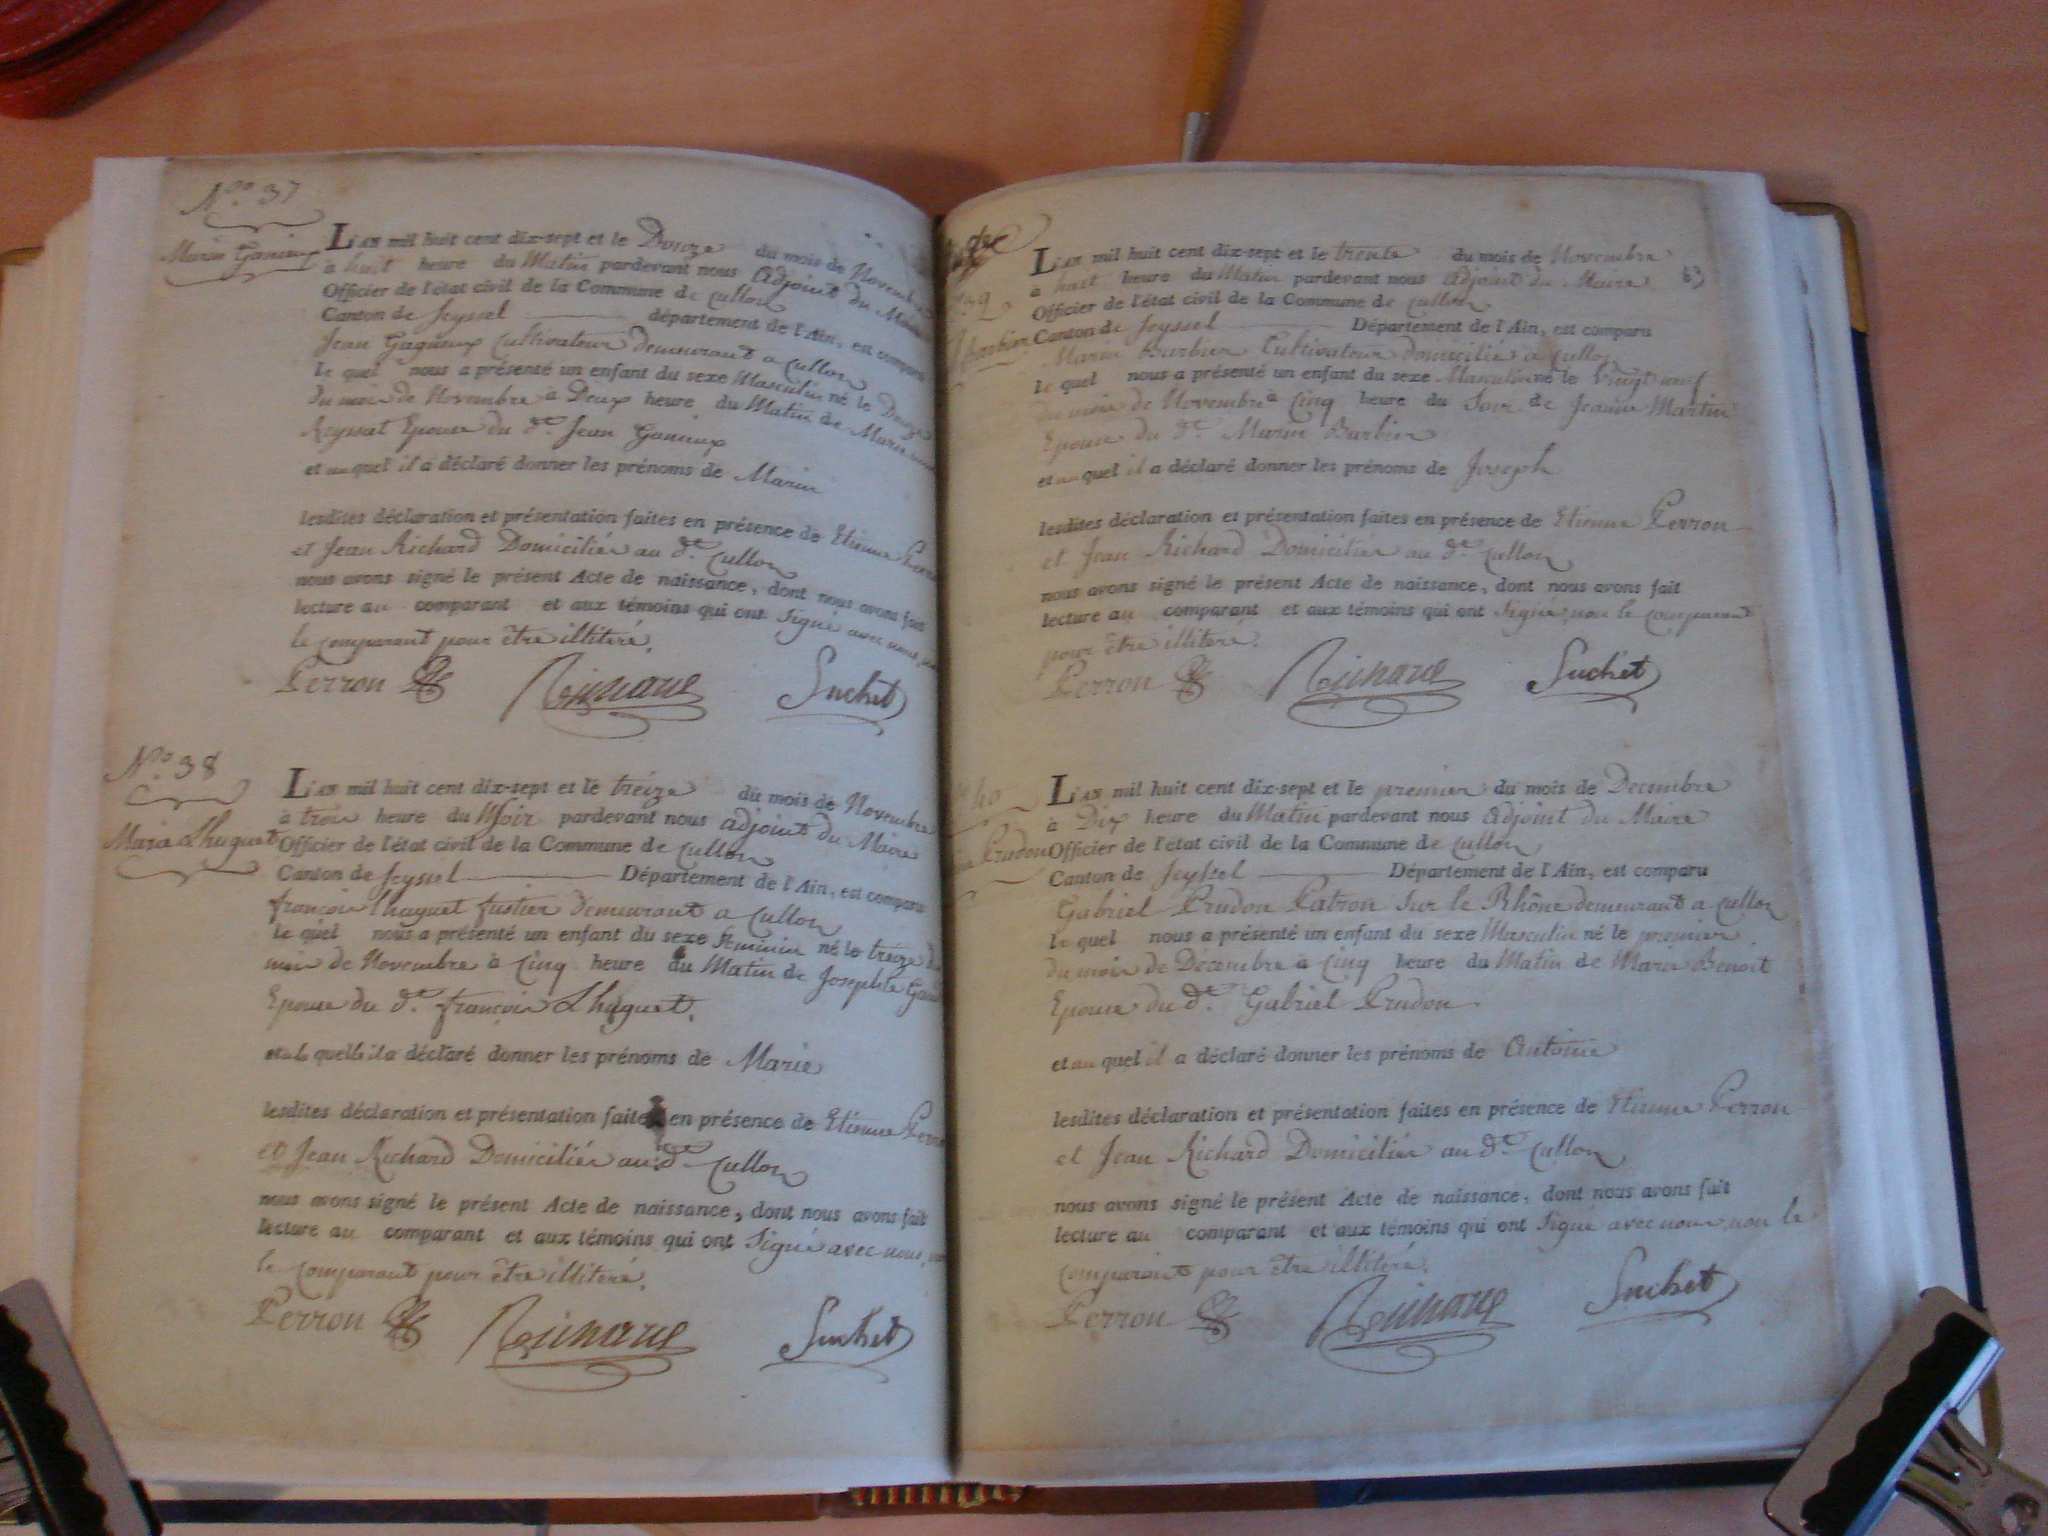 N.º 37
Marin Ganieux
L'AN mil huit cent dix-sept et le Douze du mois de Novembre
à huit heure du Matin pardevant nous adjoint du Maire
Officier de l'état civil de la Commune de Cullon
Canton de Seyssel département de l'Ain, est comparu
Jean Gagnieux Cultivateur demeurant a Cullon
le quel nous a présenté un enfant du sexe Masculin né le Douze
du mois de Novembre à Deux heure du Matin de Marie
Reyssat Epouse du d.t Jean Ganieux
et au quel il a déclaré donner les prénoms de Marin
lesdites déclaration et présentation faites en présence de Etienne Perron
et Jean Richard Domiciliés au d.t Cullon
nous avons signé le présent Acte de naissance, dont nous avons fait
lecture au comparant et aux témoins qui ont Signé avec nous, non
le comparant pour être illitéré.
Perron Richard Suchet
N.º 38
Marie Lhuguet
L'AN mil huit cent dix-sept et le treize du mois de Novembre
à trois heure du Soir pardevant nous adjoint du Maire
Officier de l'état civil de la Commune de Cullon
Canton de Seyssel Département de l'Ain, est comparu
françois Lhuguet fustier Demeurant a Cullon
le quel nous a présenté un enfant du sexe feminin né le treize du
mois de Novembre à Cinq heure du Matin de Josephte
Epouse du d.t françois Lhuguet.
et a la quelle il a déclaré donner les prénoms de Marie
lesdites déclaration et présentation faites en présence de Etienne Perron
et Jean Richard Domiciliés au d.t Cullon
nous avons signé le présent Acte de naissance, dont nous avons fait
lecture au comparant et aux témoins qui ont Signé avec nous, non
le comparant pour être illitéré.
Perron Richard Suchet
63
39
Barbier
L'AN mil huit cent dix-sept et le trente du mois de Novembre
à huit heure du Matin pardevant nous adjoint du Maire
Officier de l'état civil de la Commune de Cullon
Canton de Seyssel Département de l'Ain, est comparu
Marin Barbier Cultivateur domicilié a Cullon
le quel nous a présenté un enfant du sexe Masculin né le Vingt neuf
du mois de Novembre à Cinq heure du Soir de Jeanne Martin
Epouse du d.t Marin Barbier
et au quel il a déclaré donner les prénoms de Joseph
lesdites déclaration et présentation faites en présence de Etienne Perron
et Jean Richard Domiciliés au d.t Cullon
nous avons signé le présent Acte de naissance, dont nous avons fait
lecture au comparant et aux témoins qui ont Signé, non le comparant
pour être illiteré.
Perron Richard Suchet
40
Prudon
L'AN mil huit cent dix-sept et le premier du mois de Decembre
à Dix heure du Matin pardevant nous adjoint du Maire
Officier de l'état civil de la Commune de Cullon
Canton de Seyssel Département de l'Ain, est comparu
Gabriel Prudon Patron sur le Rhône demeurant a Cullon
le quel nous a présenté un enfant du sexe Masculin né le premier
du mois de Decembre à Cinq heure du Matin de Marie Benoit
Epouse du d.t Gabriel Prudon
et au quel il a déclaré donner les prénoms de Antoine
lesdites déclaration et présentation faites en présence de Etienne Perron
et Jean Richard Domiciliés au d.t Cullon
nous avons signé le présent Acte de naissance, dont nous avons fait
lecture au comparant et aux témoins qui ont Signé avec nous, non le
comparant pour être illitéré.
Perron Richard Suchet